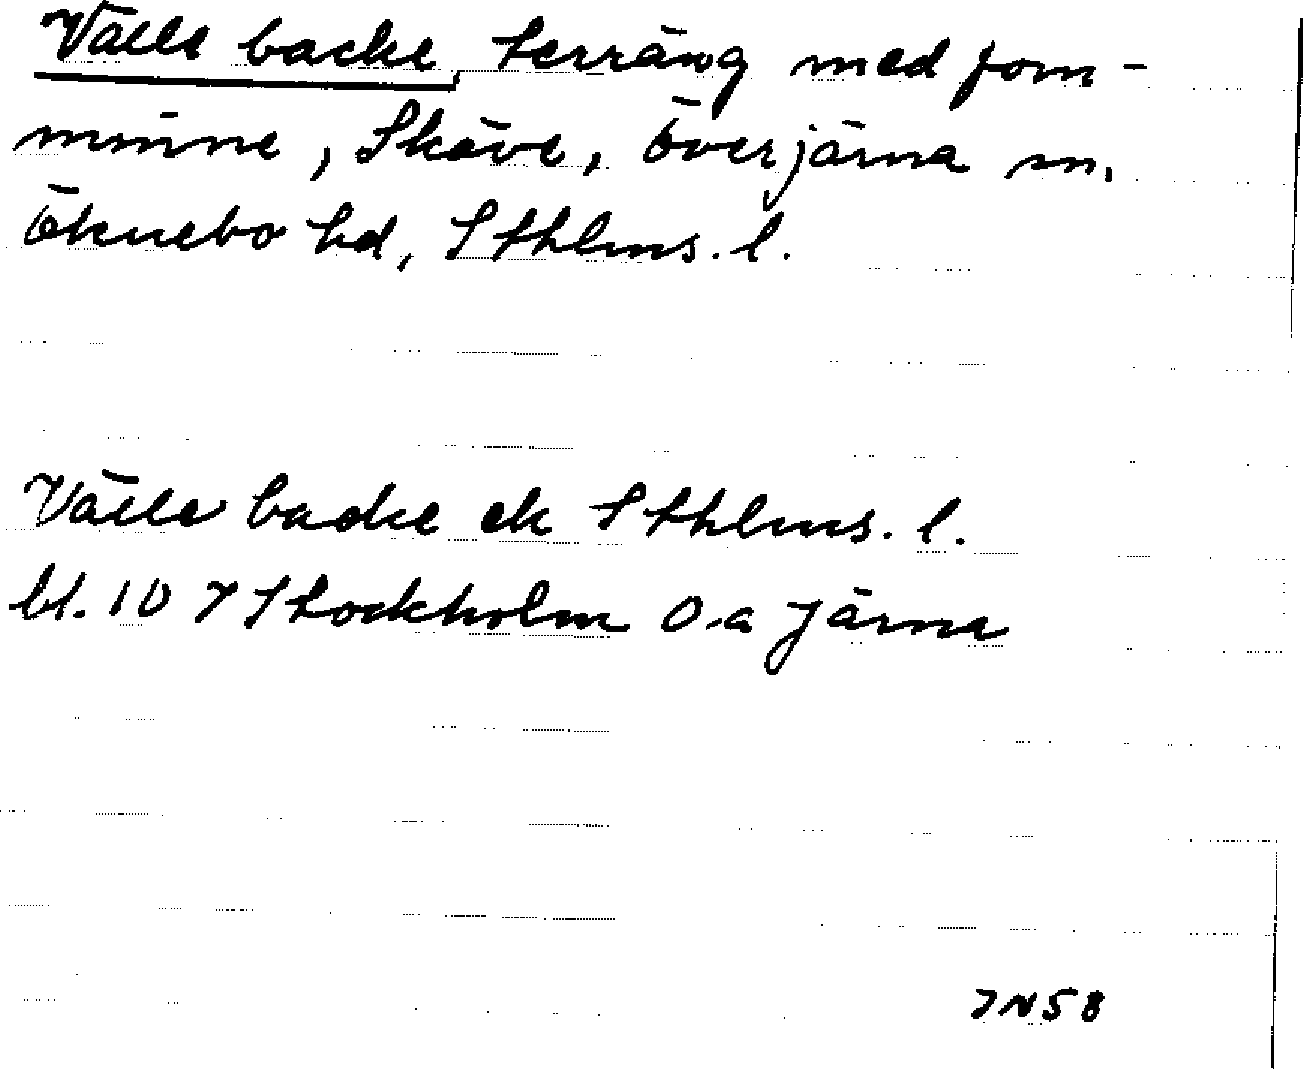 Välle backe, Terräng med forn-
minne, Skäve, Överjärna sn.
Öknebo hd, Sthlms. l.
Välle backe ek Sthlms. l.
bl. 10 7 Stockholm O-a Järna
JN58